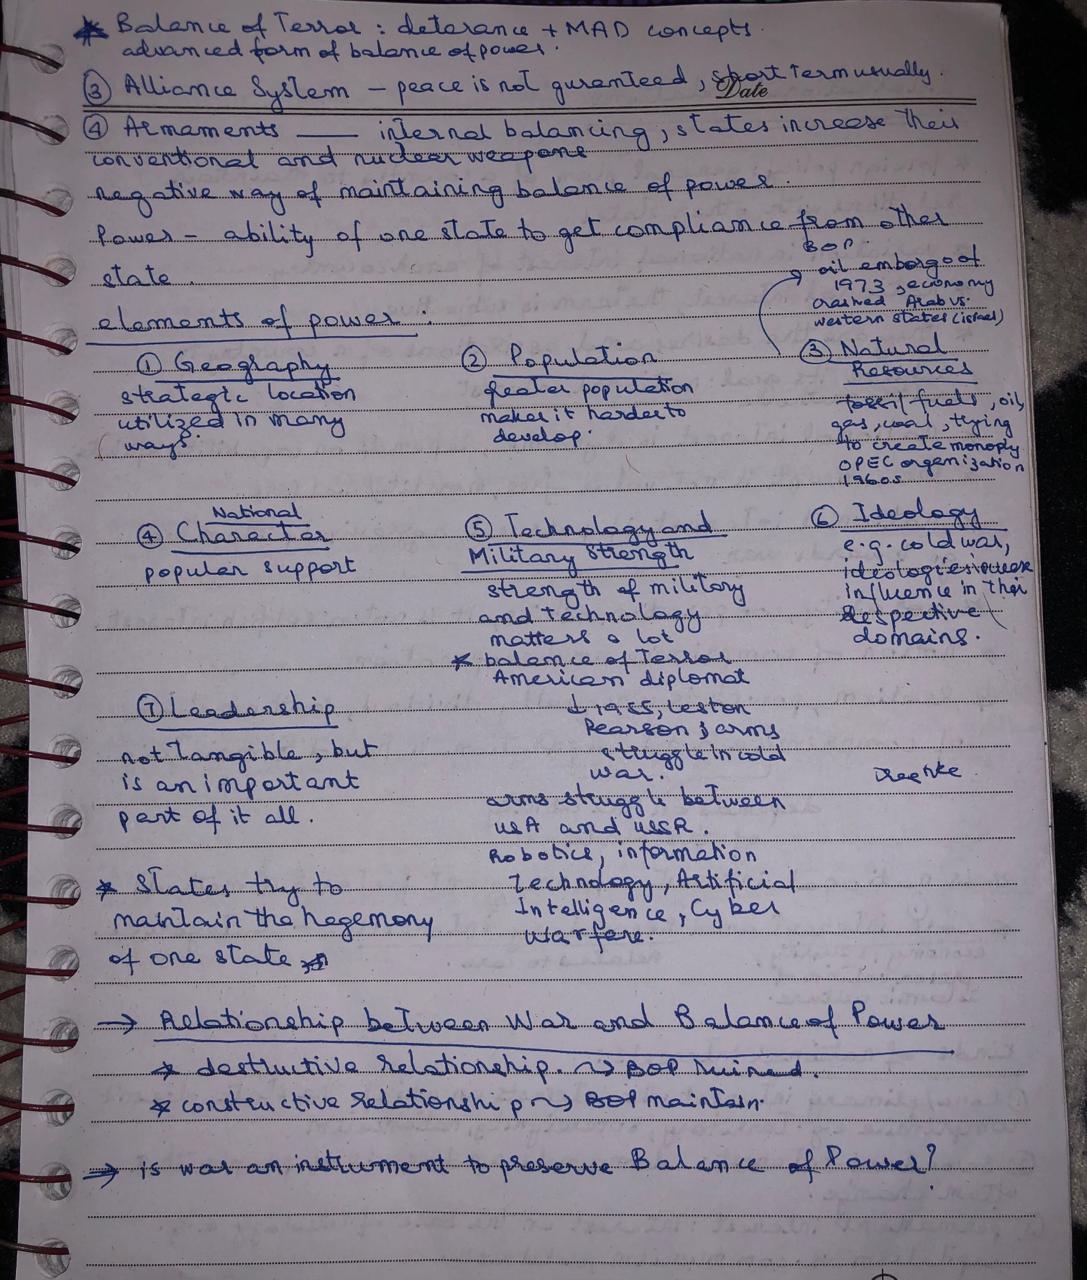 * Balance of Terror : deterance + MAD concepts.
advanced form of balance of power.
③ Alliance System – peace is not guranteed, short term usually.
Date
④ Armaments —— internal balancing, states increase their
conventional and nuclear weapons
negative way of maintaining balance of power.
Power – ability of one state to get compliance from other
state.
BOP.
oil embargo of
1973, economy
crashed Arab vs.
western states (israel)
elements of power :
① Geography
strategic location
utilized in many
ways.
② Population
greater population
makes it harder to
develop.
③ Natural
Resources
fossil fuels, oil,
gas, coal, trying
to create monoply
OPEC organization
1960s
National
④ Character
popular support
⑤ Technology and
Military Strength
strength of military
and technology
matters a lot
* balance of Terror
American diplomat
1955, Leston
Pearson; arms
struggle in cold
war.
arms struggle between
USA and USSR.
Robotics, information
Technology, Artificial
Intelligence, Cyber
warfare.
⑥ Ideology
e.g. cold war,
ideologies
influence in their
respective
domains.
⑦ Leadership
not tangible, but
is an important
part of it all.
* States try to
maintain the hegemony
of one state
→ Relationship between War and Balance of Power
* destructive relationship. ~> BOP ruined.
* constructive relationship ~> BOP maintain.
→ is war an instrument to preserve Balance of Power?